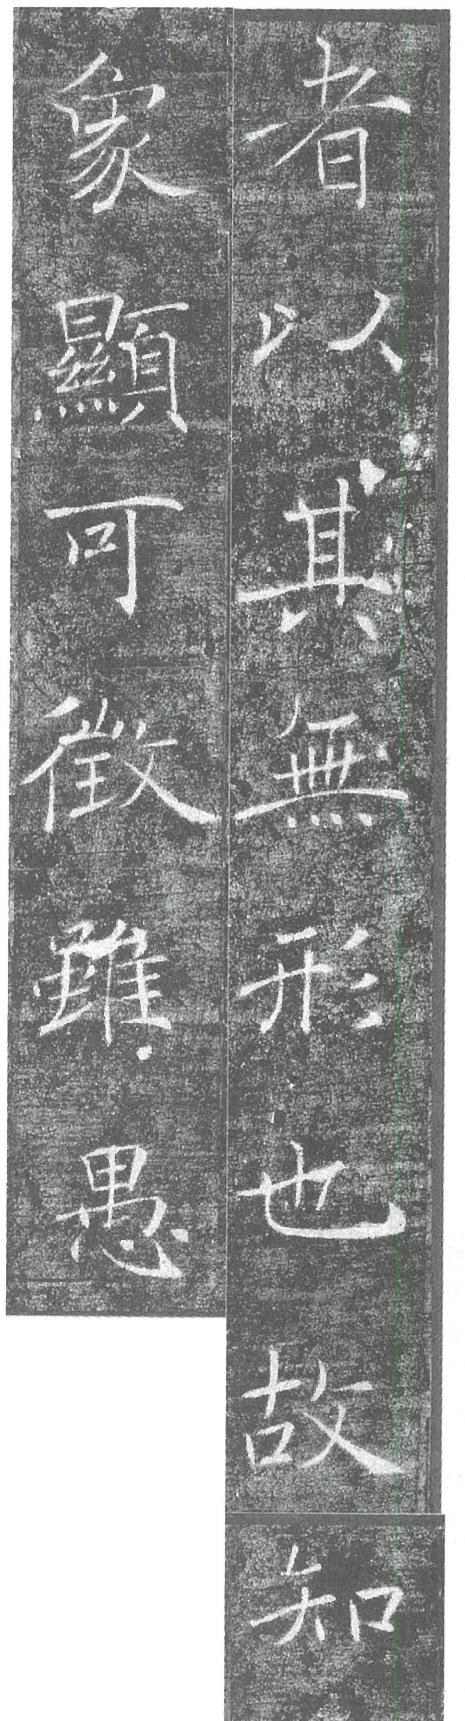 者以其無形也故知
象顯可徵雖愚